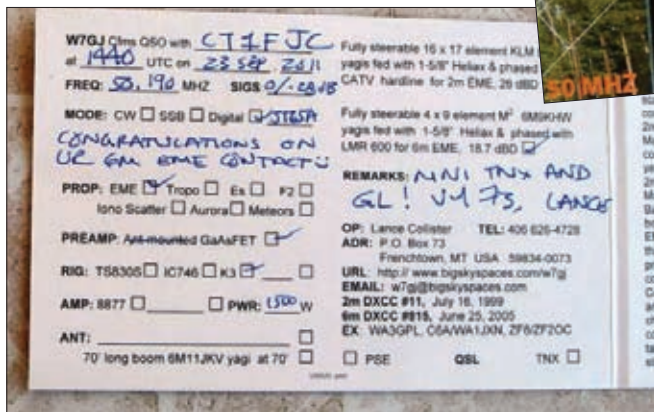 W7GJ Cfms QSO with CT1FJC
at 1440 UTC on 23 SEP, 2011
FREQ: 50.190 MHZ SIGS O/-28dB
MODE: CW SSB Digital JT65A
CONGRATULATIONS ON
UR 6M EME CONTACT
PROP: EME Tropo Es F2
Iono Scatter Aurora Meteors
PREAMP: Ant-mounted GaAsFET
RIG: TS830S IC746 K3
AMP: 8877 PWR: 1500 W
ANT:
70' long boom 6M11JKV yagi at 70'
Fully steerable 16 x 17 element KLM
yagis fed with 1-5/8" Heliax & phased
CATV hardline for 2m EME. 26 dBD
Fully steerable 4 x 9 element M² 6M9KHW
yagis fed with 1-5/8" Heliax & phased with
LMR 600 for 6m EME. 18.7 dBD
REMARKS: MNI TNX AND
GL! VY 73, LANCE
OP: Lance Collister TEL: 406 626-4728
ADR: P.O. Box 73
Frenchtown, MT USA 59834-0073
URL: http://www.bigskyspaces.com/w7gj
EMAIL: w7gj@bigskyspaces.com
2m DXCC #11, July 16, 1999
6m DXCC #815, June 25, 2005
EX: WA3GPL, C6A/WA1JXN, ZF8/ZF2OC
PSE QSL TNX
50 MHZ